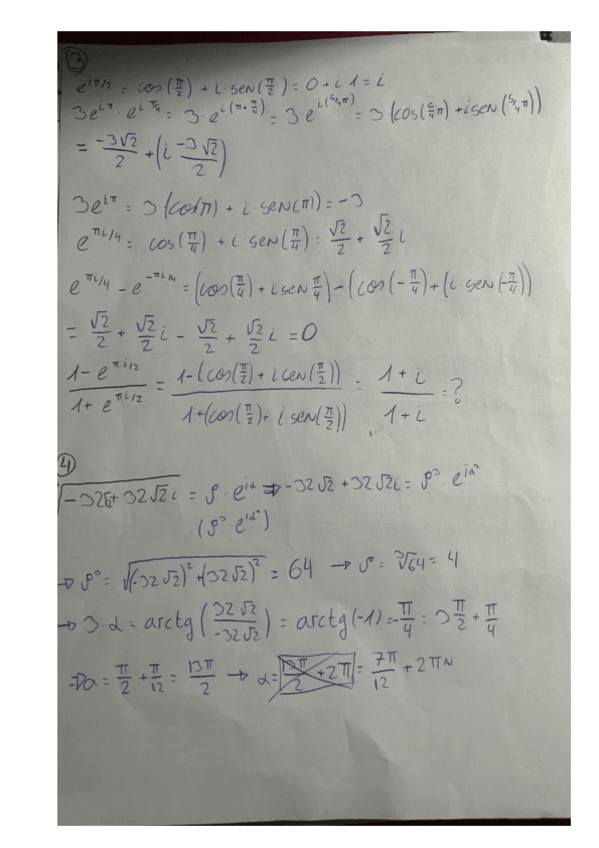 ③
e^{iπ/2} = cos(π/2) + i·sen(π/2) = 0 + i 1 = i
3e^{iπ}·e^{iπ/4} = 3·e^{i(π+π/4)} = 3·e^{i(5/4π)} = 3(cos(5/4π) + i sen(5/4π))
= -3√2/2 + (i -3√2/2)
3e^{iπ} = 3(cos π) + i·sen(π)) = -3
e^{πi/4} = cos(π/4) + i·sen(π/4) = √2/2 + √2/2 i
e^{πi/4} - e^{-πi/4} = (cos(π/4) + i sen π/4) - (cos(-π/4) + (i·sen(-π/4))
= √2/2 + √2/2 i - √2/2 + √2/2 i = 0
1-e^{πi/2}/1+e^{πi/2} = 1-(cos(π/2) + i sen(π/2))/1+(cos(π/2) + i sen(π/2)) = 1+i/1+i = ?
④
√-32√2+32√2i = ρ·e^{iα} ⇒ -32√2 + 32√2i = ρ³·e^{iα³}
(ρ³·e^{iα³})
→ ρ³ = √(-32√2)²+(32√2)² = 64 → ρ = ∛64 = 4
→ 3·α = arctg(32√2/-32√2) = arctg(-1) = -π/4 = 3π/2 + π/4
→ α = π/2 + π/12 = 13π/2 → α = 7π/12 + 2πN